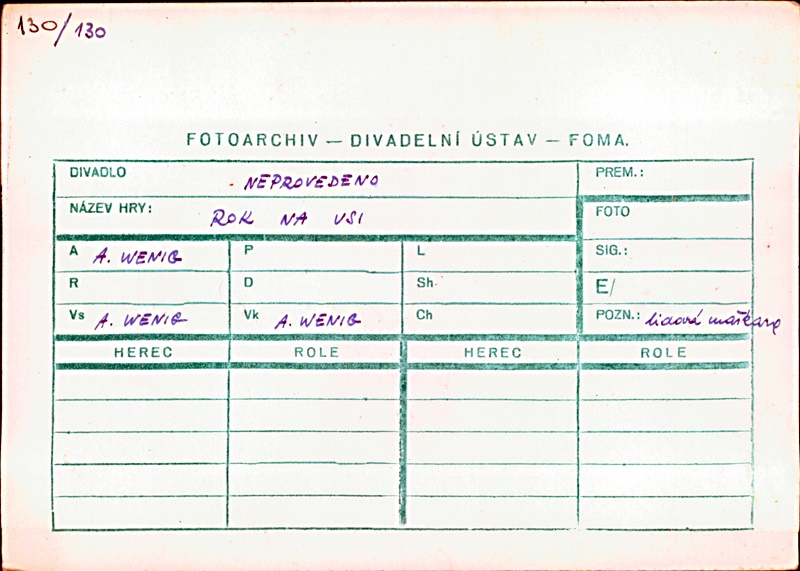 130/130
FOTOARCHIV — DIVADELNÍ ÚSTAV — FOMA.
DIVADLO NEPROVEDENO PREM.:
NÁZEV HRY: ROK NA VSI FOTO
A A. WENIG P L SIG.:
R D Sh. E/
Vs A. WENIG Vk A. WENIG Ch POZN.: lidová maškara
HEREC ROLE HEREC ROLE